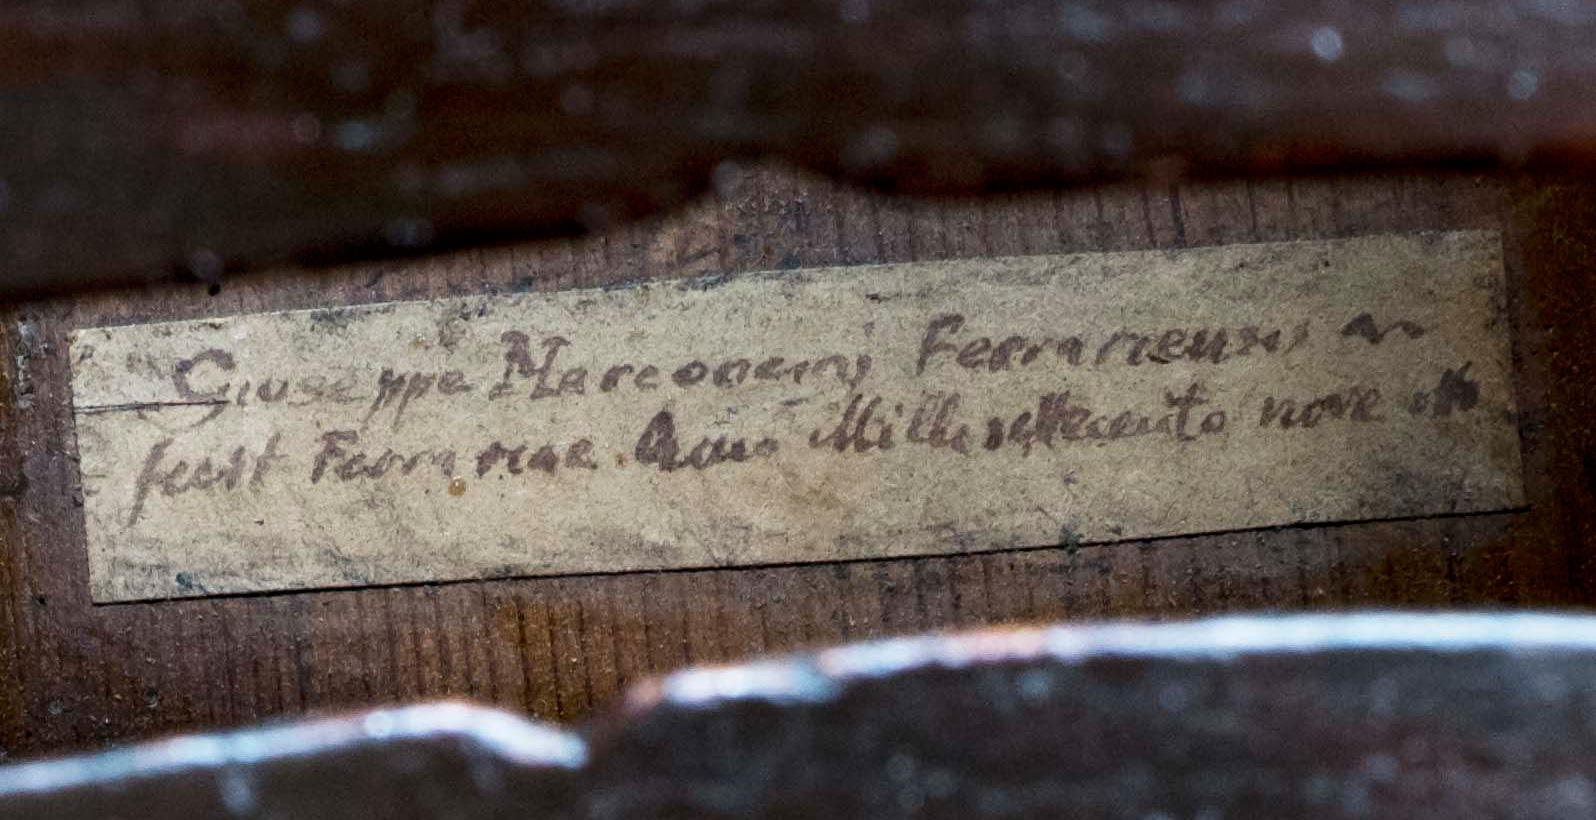 Giuseppe Marconcinj Ferrariensis
fecit Ferrariae Anno Mille settecento nove